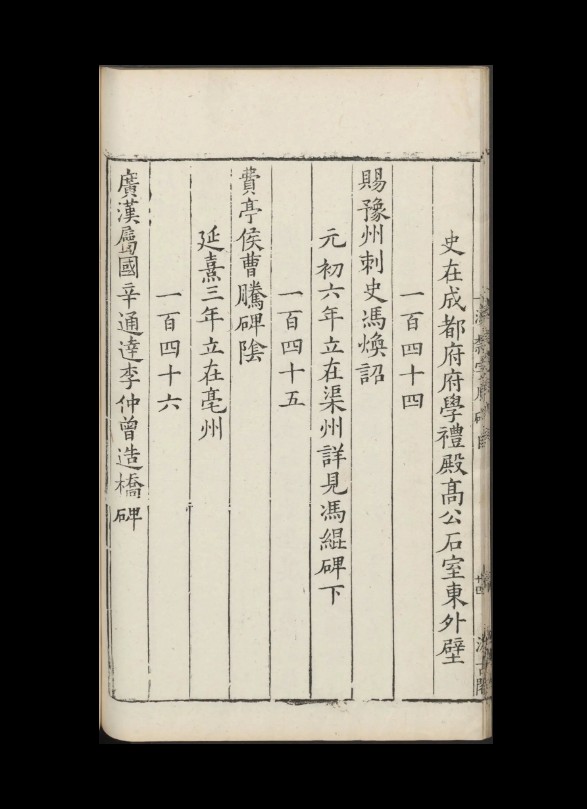 史在成都府府學禮殿髙公石室東外壁
一百四十四
賜豫州刺史馮煥詔
元初六年立在渠州詳見馮緄碑下
一百四十五
費亭侯曹騰碑隂
延熹三年立在亳州
一百四十六
廣漢屬國辛通達李仲曾造橋碑